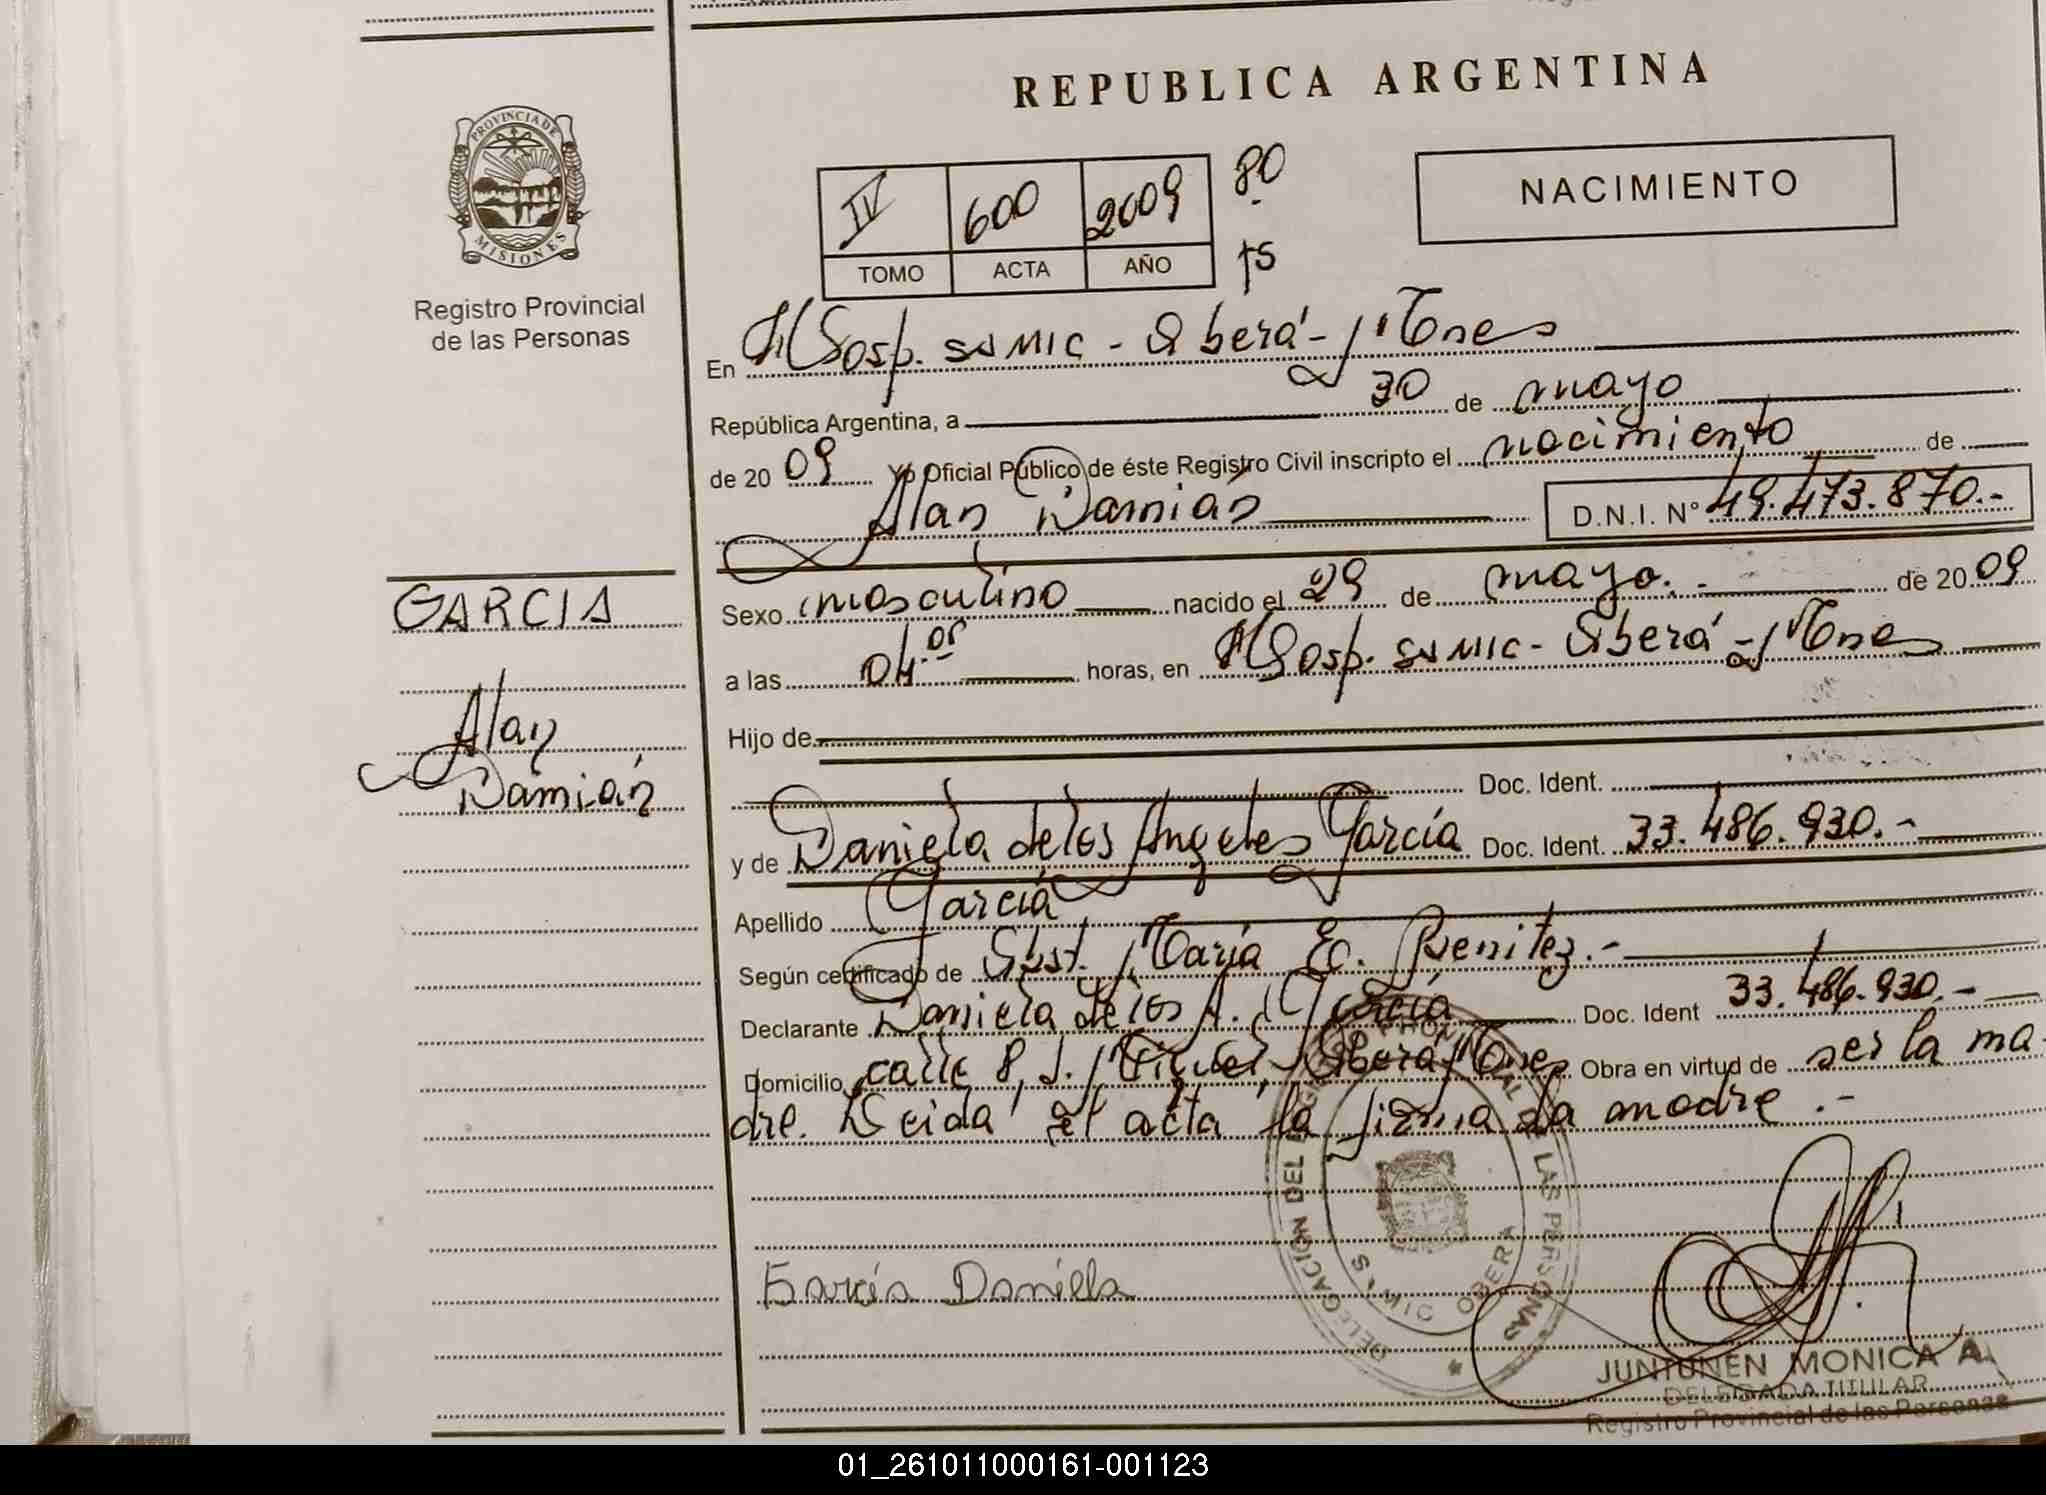 REPUBLICA ARGENTINA
PROVINCIA DE MISIONES
Registro Provincial
de las Personas
IV 600 2009 80
TOMO ACTA AÑO
NACIMIENTO
En Hosp. SAMIC - Oberá - Mnes
República Argentina, a 30 de mayo
de 20 09 Yo Oficial Público de éste Registro Civil inscripto el nacimiento de
Alan Damián D.N.I. N° 49.473.870.-
GARCIA
Alan
Damián
Sexo masculino nacido el 29 de mayo. - de 20 09
a las 04. horas, en Hosp. SAMIC - Oberá - Mnes
Hijo de
Doc. Ident.
y de Daniela de los Angeles García Doc. Ident. 33.486.930.-
Apellido García
Según certificado de Obst. María E. Benitez.-
Declarante Daniela de los A. García Doc. Ident 33.486.930.-
Domicilio calle 8, Oberá Mnes Obra en virtud de ser la ma-
dre. Leida el acta la firma la madre.-
García Daniela
DELEGACION DEL REGISTRO PROVINCIAL DE LAS PERSONAS
OBERA
JUNTUNEN MONICA A.
DELEGADA TITULAR
Registro Provincial de las Personas
01_261011000161-001123